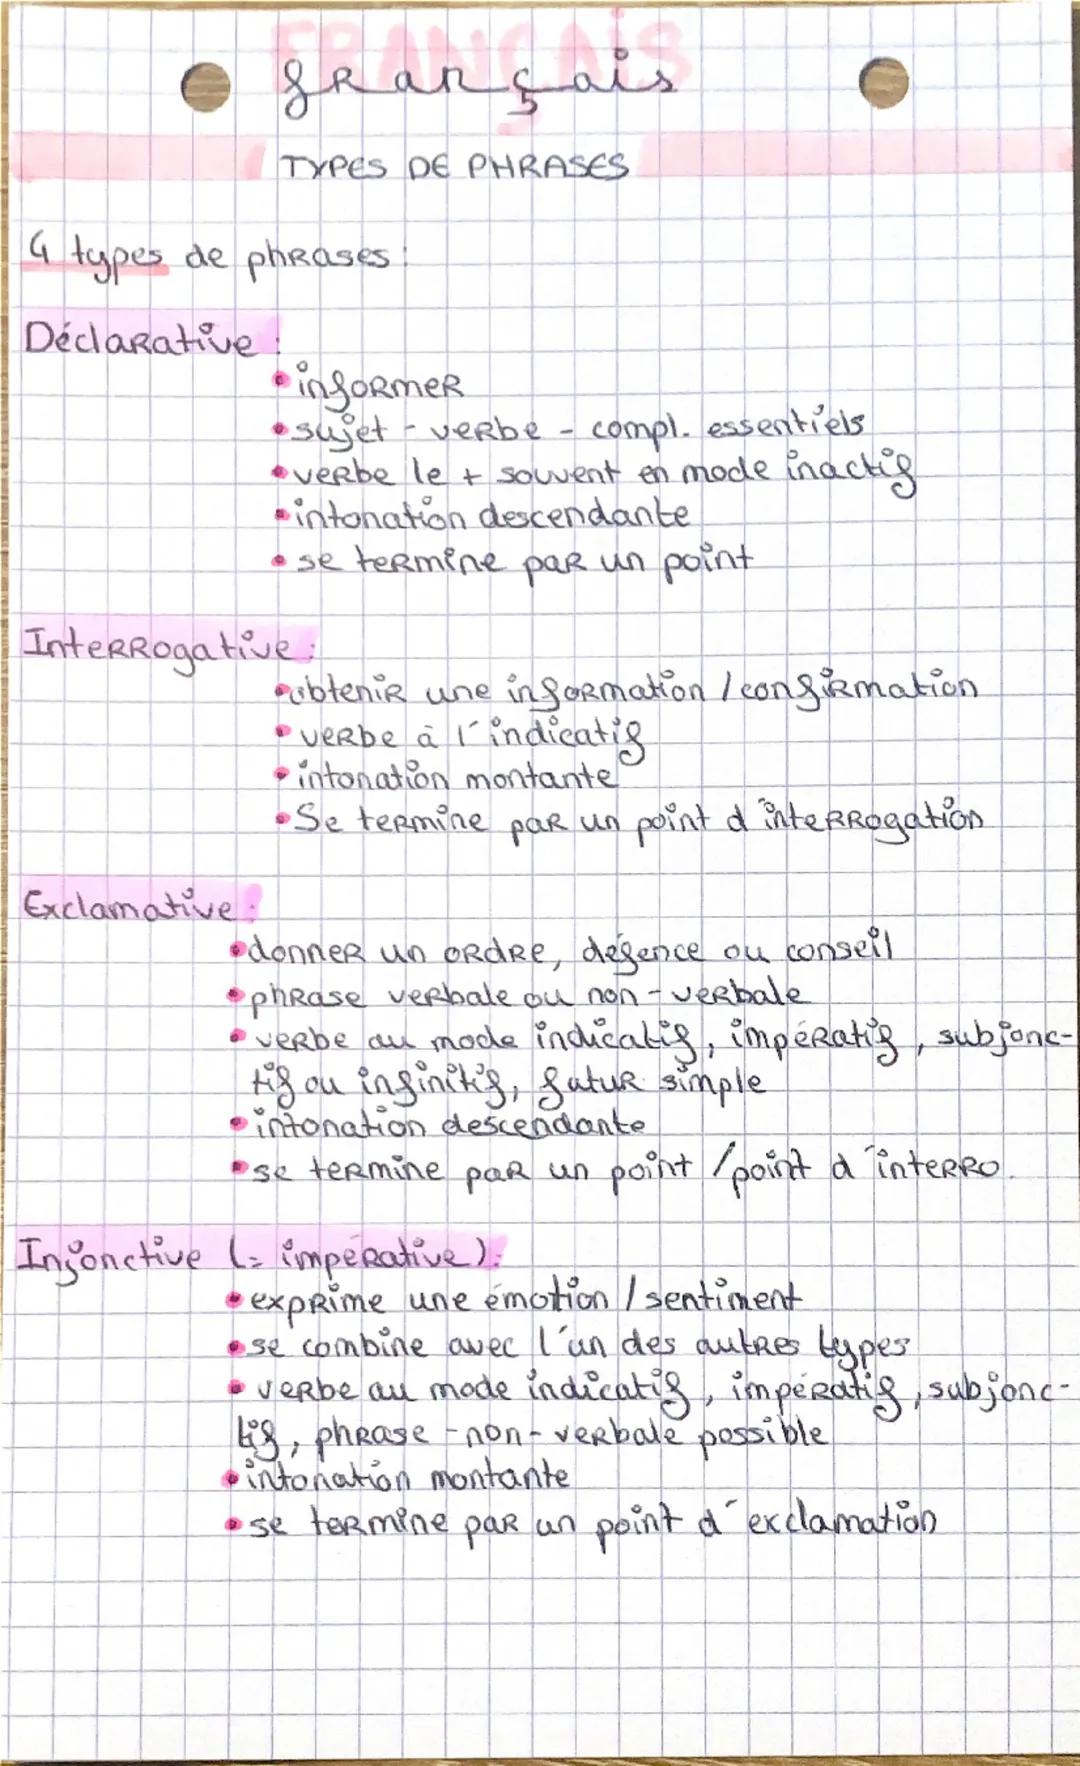 FRANÇAIS
français
TYPES DE PHRASES
4 types de phrases :
Déclarative :
• informer
• sujet - verbe - compl. essentiels
• verbe le + souvent en mode inactif
• intonation descendante
• se termine par un point
Interrogative :
• obtenir une information / confirmation
• verbe à l'indicatif
• intonation montante
• Se termine par un point d'interrogation
Exclamative :
• donner un ordre, défence ou conseil
• phrase verbale ou non-verbale
• verbe au mode indicatif, impératif, subjonc-
tif ou infinitif, futur simple
• intonation descendante
• se termine par un point / point d'interro.
Injonctive (= impérative) :
• exprime une émotion / sentiment
• se combine avec l'un des autres types
• verbe au mode indicatif, impératif, subjonc-
tif, phrase -non-verbale possible
• intonation montante
• se termine par un point d'exclamation